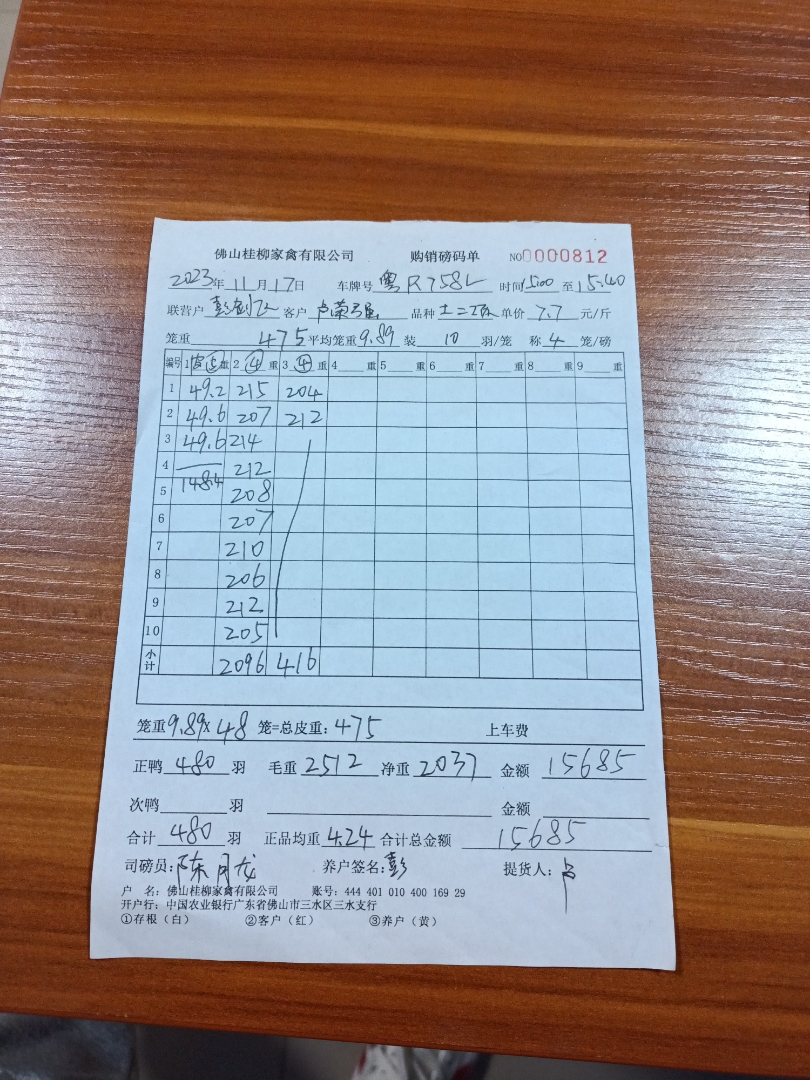 佛山桂柳家禽有限公司 购销磅码单 NO0000812
2023年11月17日 车牌号 粤R758L 时间15:00至15:40
联营户 客户 品种 土二 单价 7.7 元/斤
笼重 475 平均笼重9.89 装 10 羽/笼 称 4 笼/磅
编号 1 重 2 ④ 重 3 ④ 重 4 重 5 重 6 重 7 重 8 重 9 重
1 49.2 215 204
2 49.6 207 212
3 49.6 214
4 212
5 148.4 208
6 207
7 210
8 206
9 212
10 205
小计 2096 416
笼重9.89×48 笼=总皮重:475 上车费
正鸭 480 羽 毛重 2512 净重 2037 金额 15685
次鸭 羽 金额
合计 480 羽 正品均重 4.24 合计总金额 15685
司磅员:陈月龙 养户签名:彭 提货人:卢
户 名:佛山桂柳家禽有限公司 账号:444 401 010 400 169 29
开户行:中国农业银行广东省佛山市三水区三水支行
①存根(白) ②客户(红) ③养户(黄)